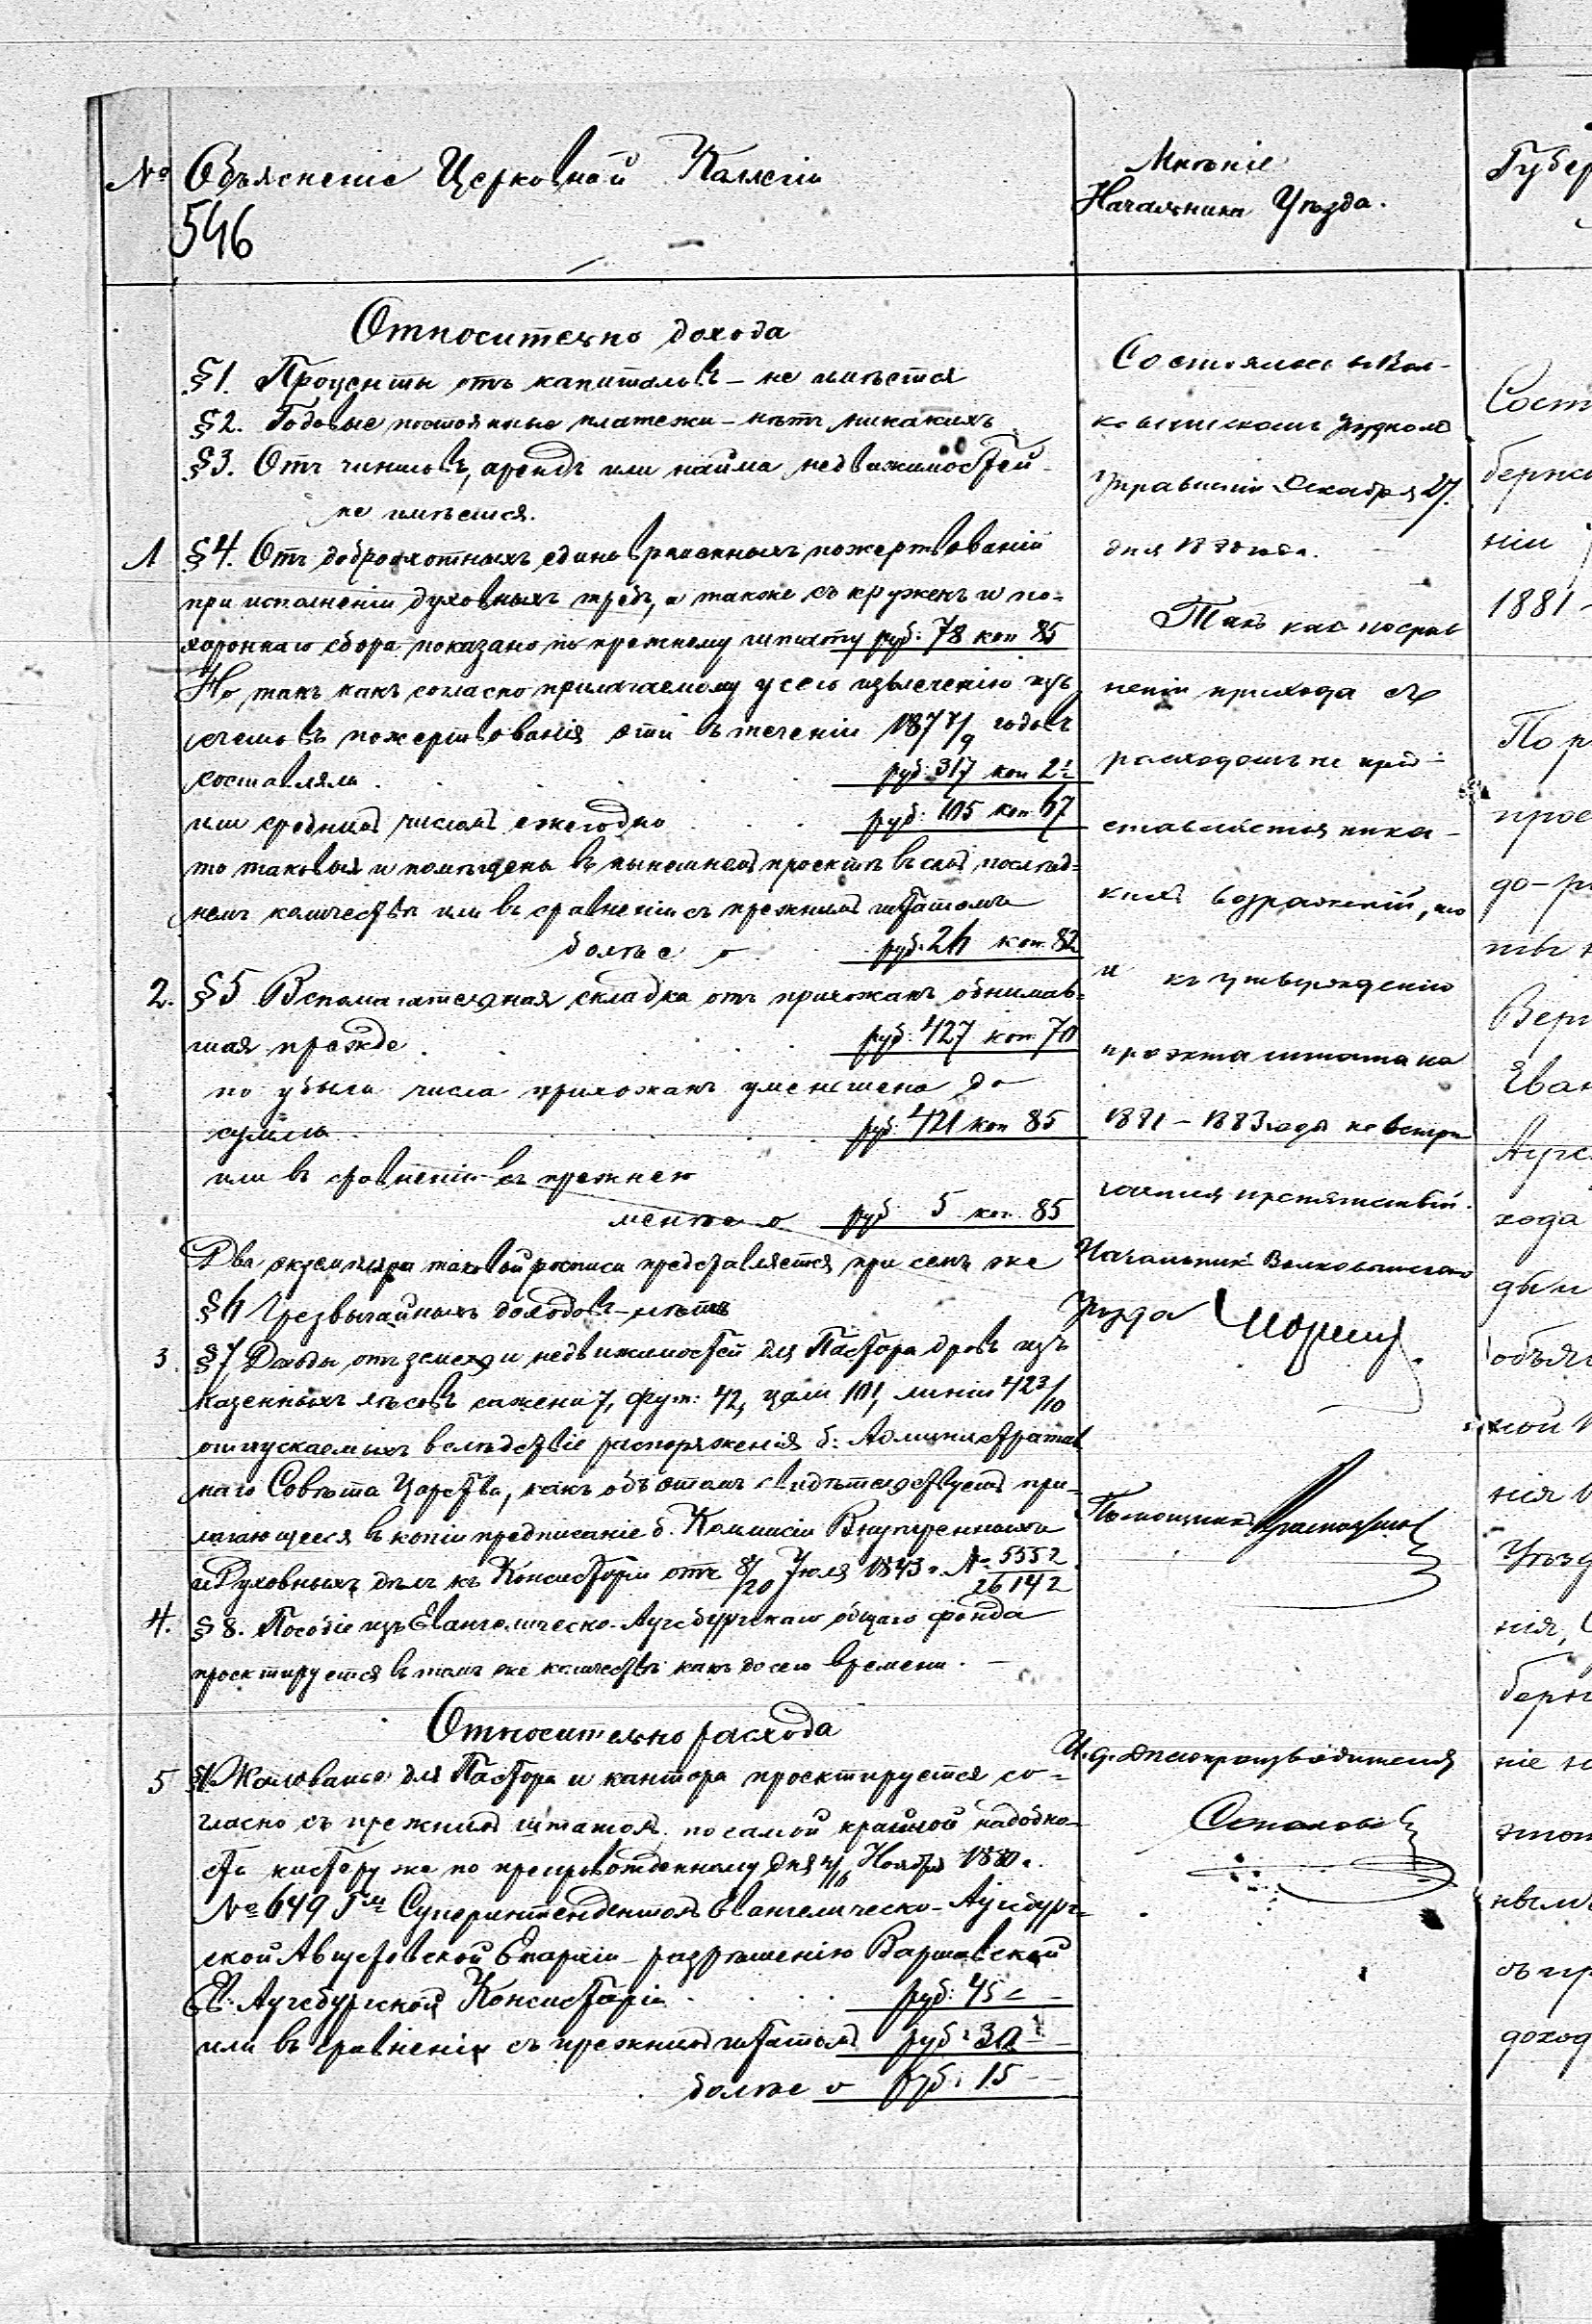 № Объясненіе Церковной Коллегіи
546
Относительно дохода
§ 1. Проценты отъ капиталовъ – не имѣется
§ 2. Годовые постоянные платежи – нѣтъ никакихъ
§ 3. Отъ чиншовъ, арендъ или найма недвижимостей –
не имѣется.
1 § 4. Отъ доброхотныхъ единовременныхъ пожертвованій
при исполненіи духовныхъ требъ, а также съ кружекъ и по=
хороннаго сбора показано по прежнему штату руб: 78 коп 85
Но такъ какъ согласно прилагаемому у сего извлеченію изъ
счетовъ пожертвованія эти въ теченіи 187 7/9 годовъ
составляли . руб: 317 коп 2½
или среднимъ числомъ ежегодно . . . руб: 105 коп 67
то таковыя и помѣщены въ нынешнемъ проектѣ въ семъ послѣд=
немъ количествѣ или въ сравненіи съ прежнимъ штатомъ
болѣе о руб. 26 коп. 82
2. § 5 Вспомагательная складка отъ прихожанъ обнимав=
шая прежде . руб: 427 коп. 70
по убыли числа прихожанъ уменьшена до
суммы . руб: 421 коп 85
или въ сравненіи съ прежнею
менѣе о руб 5 коп. 85
Два экземпляра таковой росписи представляется при семъ же
§ 6 Чрезвычайныхъ доходовъ – нѣтъ
3. § 7 Доходы отъ земель и недвижимостей для Пастора дровъ изъ
казенныхъ лѣсовъ сажени 7, фут: 42, цали 101, линіи 423/10
отпускаемыхъ вслѣдствіе распоряженія б: Административ
наго Совѣта Царства, какъ объ этомъ свидѣтельствуетъ при-
лагающееся въ копіи предписаніе б. Коммисіи Внутренныхъ
и Духовныхъ дѣлъ къ Консисторіи отъ 8/20 Іюля 1843 г. № 5552/26142
4. § 8. Пособіе изъ Евангелическо-Аугсбургскаго общаго фонда
проектируется въ томъ же количествѣ какъ до сего времени. –
Относительно расхода
5 § 1. Жалованье для Пастора и кантора проектируется со=
гласно съ прежнимъ штатомъ, по самой крайней надобно-
сти кистеру же по препровожденному дня 4/16 Ноября 1880 г.
№ 649 Г-мъ Суперинтендентомъ Евангелическо-Аугсбург=
ской Августовской Епархіи – разрѣшенію Варшавской
Ев. Аугсбургской Консисторіи . . . руб: 45 –
или въ сравненіи съ прежнимъ штатомъ руб: 30 –
болѣе о руб: 15 –
Мнѣніе
Начальника Уѣзда.
Состоялось въ Вол-
ковышскомъ Уѣздномъ
Управленіи Декабря 27.
дня 1880 года. –
Такъ какъ по срав
неніи прихода съ
расходомъ не пред-
ставляется ника-
кихъ возраженій, то
и къ утвержденію
проэкта штата на
1881 – 1883 года не встрѣ
чается препятствій.
Начальникъ Волковышскаго
Уѣзда
Помощникъ
И. д. Дѣлопроизводителя
Губер
Сост
берн
ніи
1881 –
По р
прое
до-ра
Еван
Аугс
хода
ды и
объя
ной
нія
Уѣзд
нія,
берн
ніе
этом
нымъ
съ пр
доход